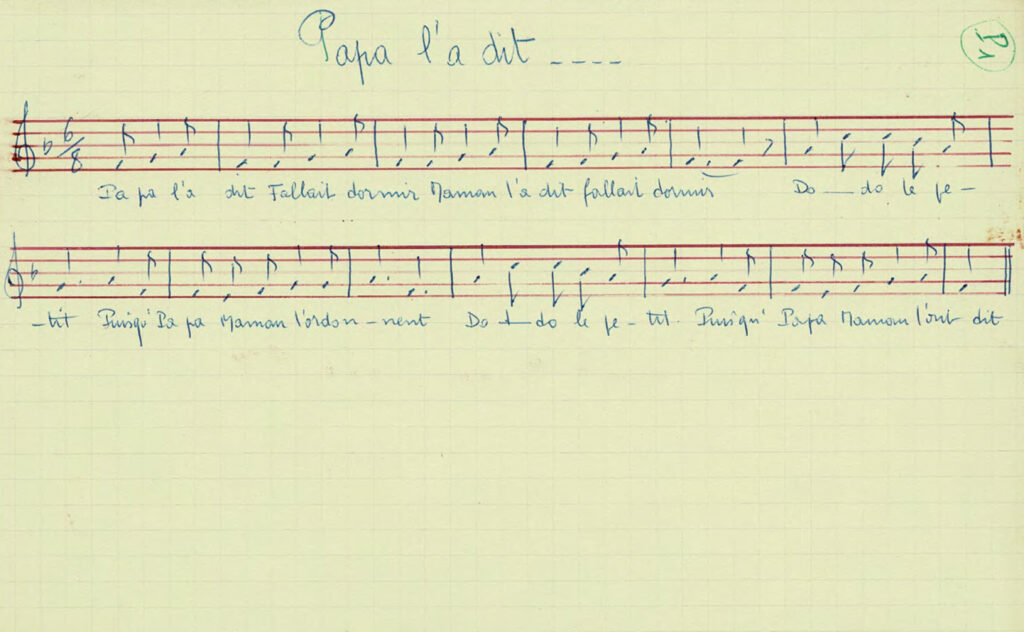 Papa l'a dit ----
P1
6/8
Pa pa l'a dit Fallait dormir Maman l'a dit fallait dormir Do — do le pe -
- tit Puisqu' Pa pa Maman l'ordon - nent Do — do le pe - tit. Puisqu' Papa Maman l'ont dit